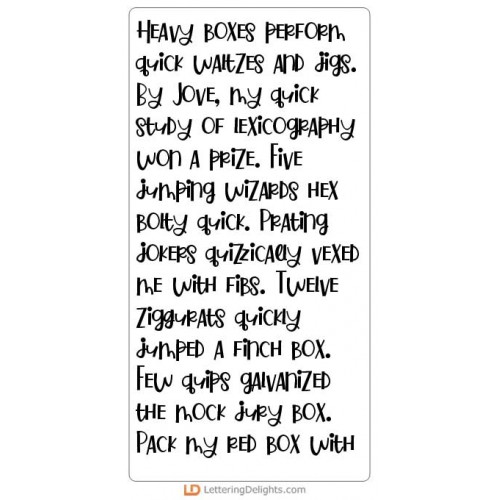 Heavy boxes perform
quick waltzes and jigs.
By Jove, my quick
study of lexicography
won a prize. Five
jumping wizards hex
bolty quick. Prating
jokers quizzically vexed
me with fibs. Twelve
ziggurats quickly
jumped a finch box.
Few quips galvanized
the mock jury box.
Pack my red box with
LD LetteringDelights.com